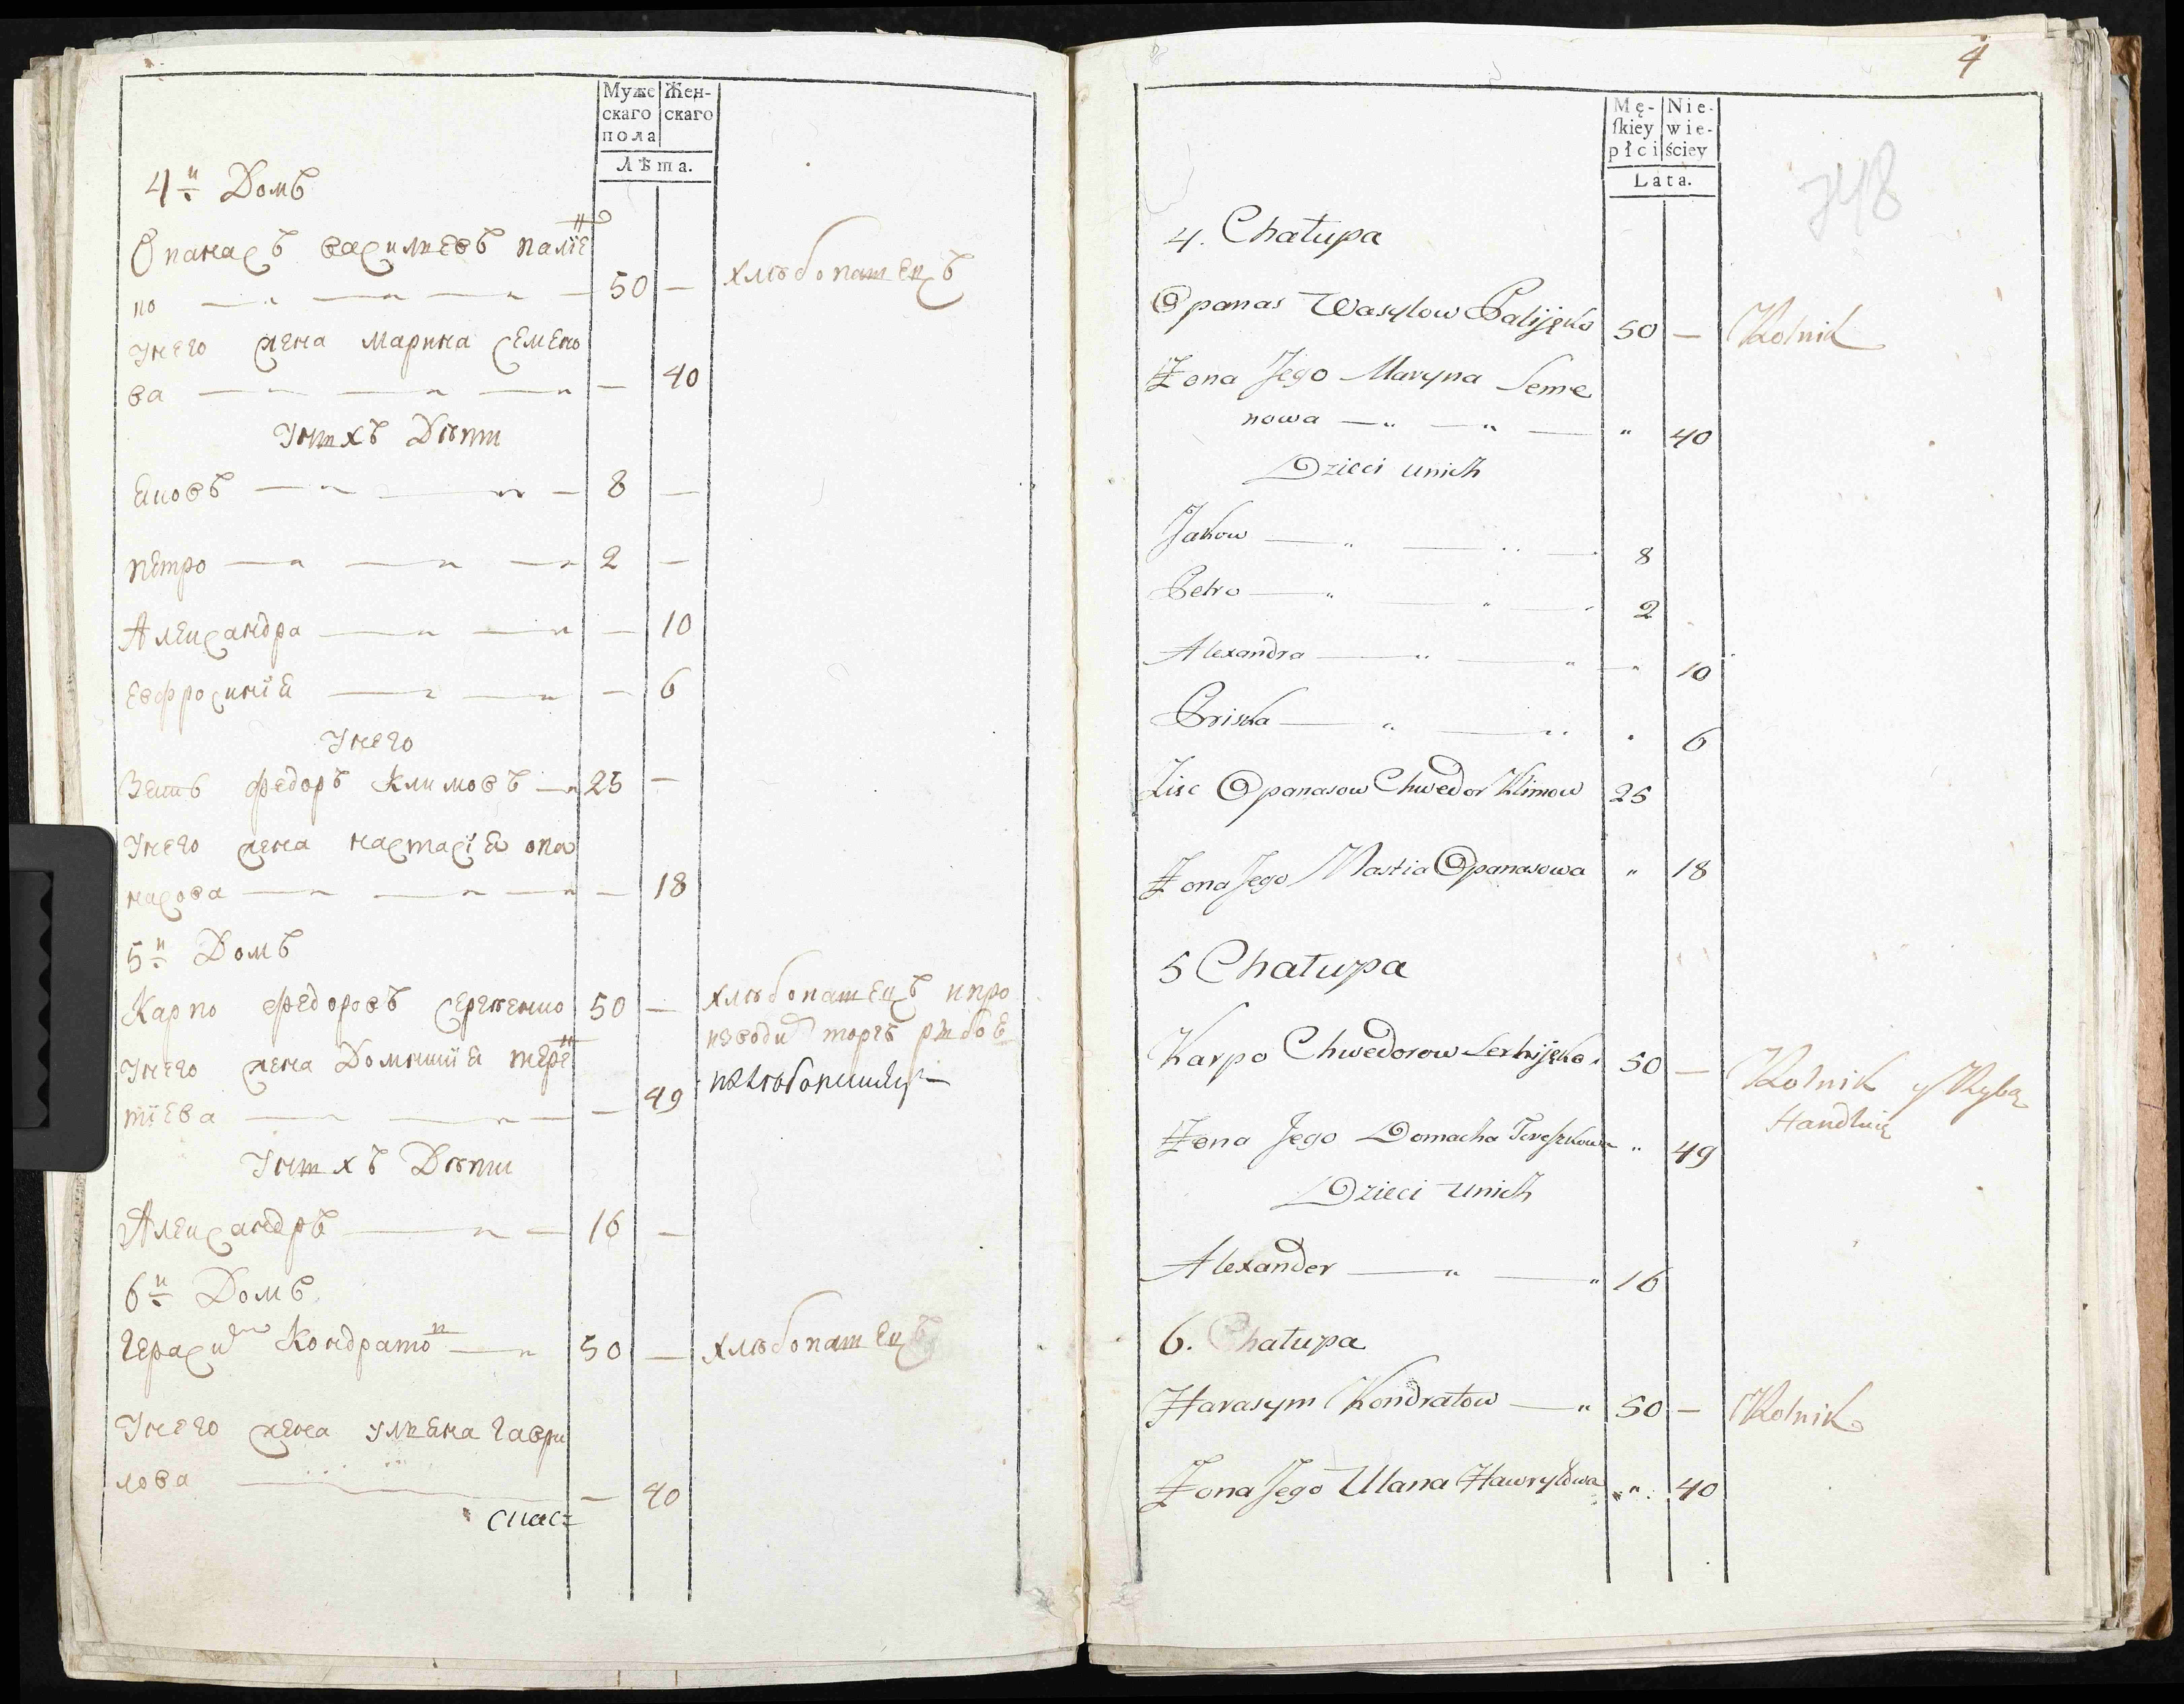 Муже
скаго
пола
Жен-
скаго
Лѣта.
4й Домъ
Опанасъ василиевъ паліен
ко 50 — хлѣбопашецъ
Унего жена марина семено
ва — 40
Унихъ Дѣти
Яковъ 8 —
петро 2 —
Александра — 10
Евфросинія — 6
Унего
Зять федоръ Климовъ 25 —
Унего жена настасія опа
насова — 18
5й Домъ
Карпо федоровъ сергеенко 50 — хлѣбопашецъ ипро
изводи торгъ рыбоѣ
Унего жена Домникія терен
тіева — 49
Унихъ Дѣти
Александръ 16 —
6й Домъ
Гераси Кондрато 50 — хлѣбопашецъ
Унего жена улияна гаври
лова — 40
4
Mę-
ſkiey
płci
Nie-
wie-
ściey
Lata.
748
4. Chałupa
Opanas Wasylow Palijęko 50 — Rolnik
Żona Jego Maryna Seme
nowa " 40
Dzieci unich
Jakow 8
Petro 2
Alexandra " 10
Priska " 6
Zisc Opanasow Chwedor Klimow 25
Żona Jego Nastia Opanasowa " 18
5 Chałupa
Karpo Chwedorow Serhijęko 50 — Rolnik y Rybą
Handluie
Żona Jego Domacha Tereszkowa " 49
Dzieci unich
Alexander " 16
6. Chałupa
Harasym Kondratow " 50 — Rolnik
Żona Jego Ulana Hawryłowa " 40